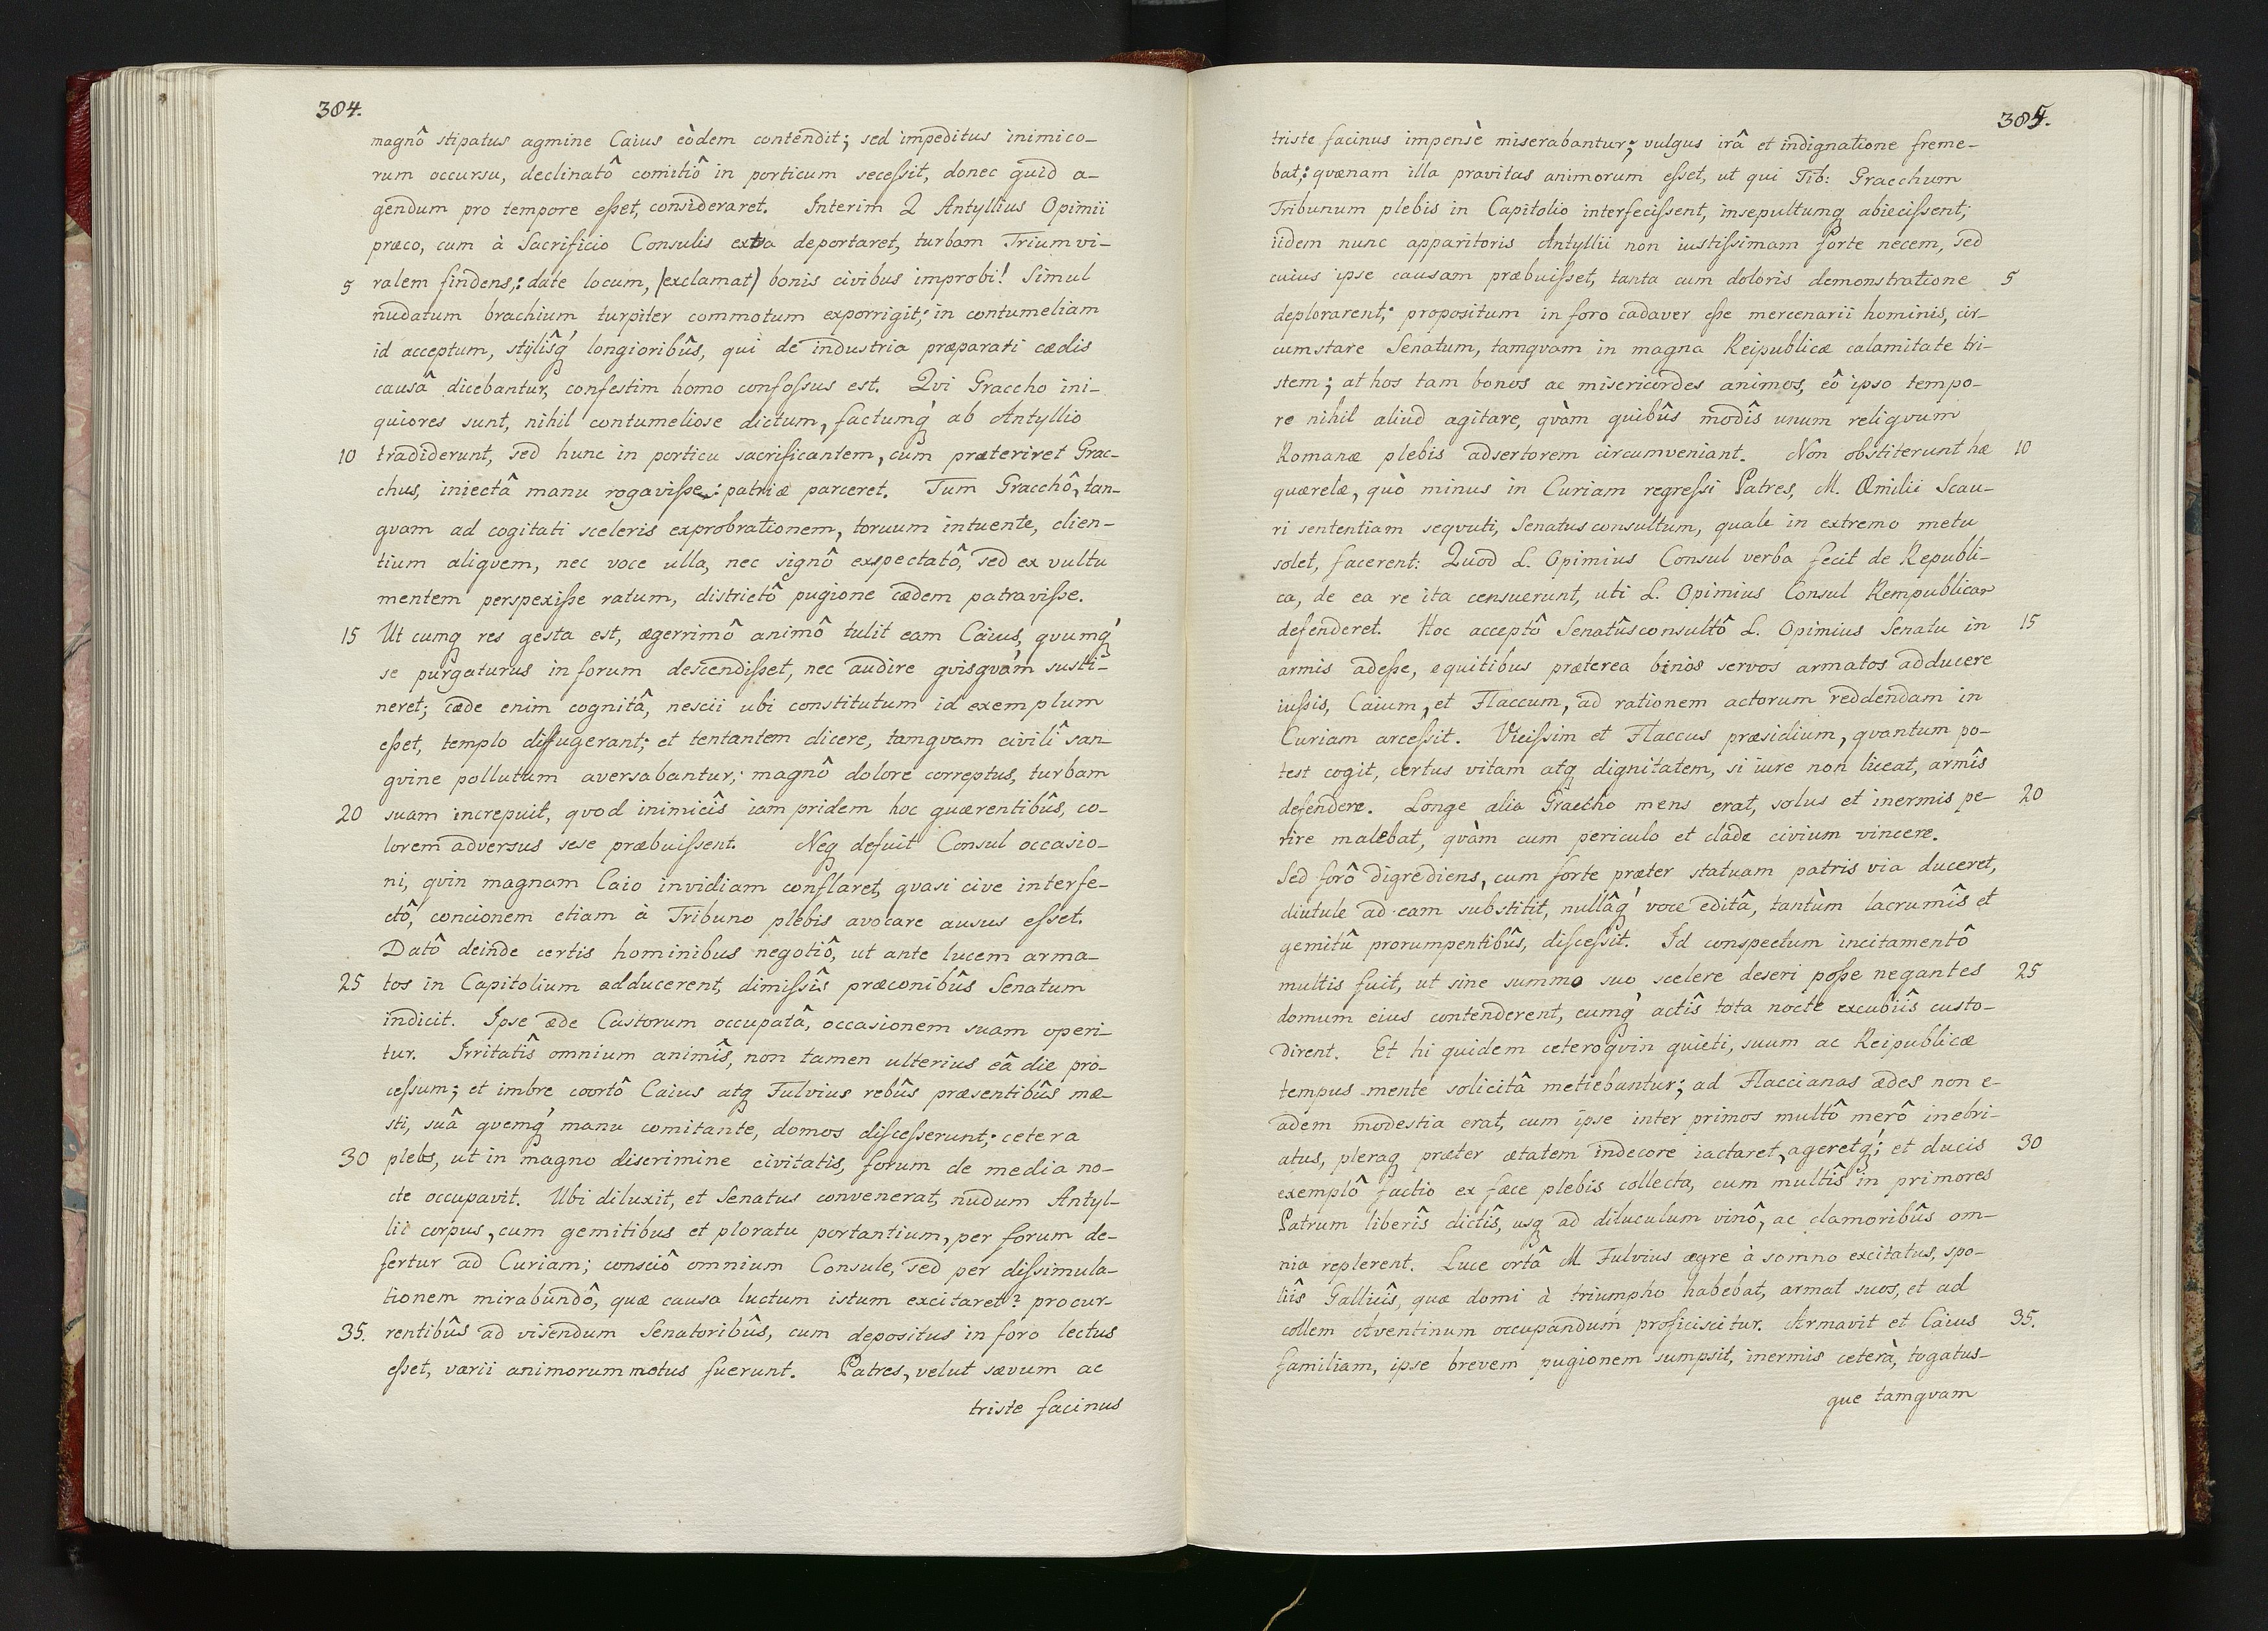 384.
magnô stipatus agmine Caius eòdem contendit; sed impeditus inimico-
rum occursu, declinatô comitiô in porticum secessit, donec quid a-
gendum pro tempore esset, consideraret. Interim Q Antyllius Opimii
præco, cum à Sacrificio Consulis exta deportaret, turbam Triumvi-
5 ralem findens,: date locum, (exclamat) bonis civibus improbi! Simul
nudatum brachium turpiter commotum exporrigit; in contumeliam
id acceptum, stylîsq́ longioribûs, qui de industria præparati cædis
causâ dicebantur, confestim homo confossus est. Qvi Graccho ini-
quiores sunt, nihil contumeliose dictum, factumq́ ab Antyllio
10 tradiderunt, sed hunc in porticu sacrificantem, cum præteriret Grac-
chus, iniectâ manu rogavisse: patriæ parceret. Tum Gracchô, tan-
qvam ad cogitati sceleris exprobrationem, toruum intuente, clien-
tium aliqvem, nec voce ulla, nec signô exspectatô, sed ex vultu
mentem perspexisse ratum, districtô pugione cædem patravisse.
15 Ut cumq res gesta est, ægerrimô animô tulit eam Caius, qvumq́
se purgaturus in forum descendisset, nec audire qvisqvam susti-
neret; cæde enim cognitâ, nescii ubi constitutum id exemplum
esset, templo diffugerant; et tentantem dicere, tamqvam civili san-
gvine pollutum aversabantur; magnô dolore correptus, turbam
20 suam increpuit, qvod inimicîs iam pridem hoc quærentibûs, co-
lorem adversus sese præbuissent. Neq defuit Consul occasio-
ni, qvin magnam Caio invidiam conflaret, qvasi cive interfe-
ctô, concionem etiam à Tribuno plebis avocare ausus esset.
Datô deinde certis hominibus negotiô, ut ante lucem arma-
25 tos in Capitolium adducerent, dimissîs præconibûs Senatum
indicit. Ipse æde Castorum occupatâ, occasionem suam operi-
tur. Irritatîs omnium animîs, non tamen ulterius eâ die pro-
cessum; et imbre coortô Caius atq Fulvius rebûs præsentibûs mæ-
sti, suâ qvemq́ manu comitante, domos discesserunt; cetera
30 plebs, ut in magno discrimine civitatis, forum de media no-
cte occupavit. Ubi diluxit, et Senatus convenerat, nudum Antyl-
lii corpus, cum gemitibus et ploratu portantium, per forum de-
fertur ad Curiam; consciô omnium Consule, sed per dissimula-
tionem mirabundô, quæ causa luctum istum excitaret? procur-
35. rentibûs ad visendum Senatoribûs, cum depositus in foro lectus
esset, varii animorum motus fuerunt. Patres, velut sævum ac
triste facinus
385.
triste facinus impensè miserabantur; vulgus irâ et indignatione freme-
bat,: qvænam illa pravitas animorum esset, ut qui Tib: Gracchum
Tribunum plebis in Capitolio interfecissent, insepultumq abiecissent;
iidem nunc apparitoris Antyllii non iustissimam forte necem, sed
cuius ipse causam præbuisset, tanta cum doloris demonstratione 5
deplorarent; propositum in foro cadaver esse mercenarii hominis, cir-
cumstare Senatum, tamqvam in magna Reipublicæ calamitate tri-
stem; at hos tam bonos ac misericordes animos, eô ipso tempo-
re nihil aliud agitare, qvàm quibûs modîs unum reliqvum
Romanæ plebis adsertorem circumveniant. Non obstiterunt hæ 10
quærelæ, quò minus in Curiam regressi Patres, M. Æmilii Scau-
ri sententiam seqvuti, Senatusconsultum, quale in extremo metu
solet, facerent: Quod L. Opimius Consul verba fecit de Republi-
ca, de ea re ita censuerunt, uti L. Opimius Consul Rempublicam
defenderet. Hoc acceptô Senatûsconsultô L. Opimius Senatu in 15
armis adesse, equitibus præterea binos servos armatos adducere
iussis, Caium, et Flaccum, ad rationem actorum reddendam in
Curiam arcessit. Vicissim et Flaccus præsidium, qvantum po-
test cogit, certus vitam atq dignitatem, si iure non liceat, armîs
defendere. Longe alia Graccho mens erat, solus et inermis pe- 20
rire malebat, qvàm cum periculo et clade civium vincere.
Sed forô digrediens, cum forte præter statuam patris via duceret,
diutule ad eam substitit, nullâq́ voce editâ, tantùm lacrumîs et
gemitû prorumpentibûs, discessit. Id conspectum incitamentô
multis fuit, ut sine summo suo scelere deseri posse negantes 25
domum eius contenderent, cumq́ actîs tota nocte excubiîs custo-
dirent. Et hi quidem ceteroqvin quieti, suum ac Reipublicæ
tempus mente solicitâ metiebantur; ad Flaccianas ædes non e-
adem modestia erat, cum ipse inter primos multô merô inebri-
atus, pleraq præter ætatem indecore iactaret, ageretq́; et ducis 30
exemplô factio ex fæce plebis collecta, cum multîs in primores
Patrum liberîs dictîs, usq ad diluculum vinô, ac clamoribûs om-
nia replerent. Luce ortâ M Fulvius ægre à somno excitatus, spo-
liîs Gallicîs, quæ domi à triumpho habebat, armat suos, et ad
collem Aventinum occupandum proficiscitur. Armavit et Caius 35.
familiam, ipse brevem pugionem sumpsit, inermis ceterà, togatus-
que tamqvam